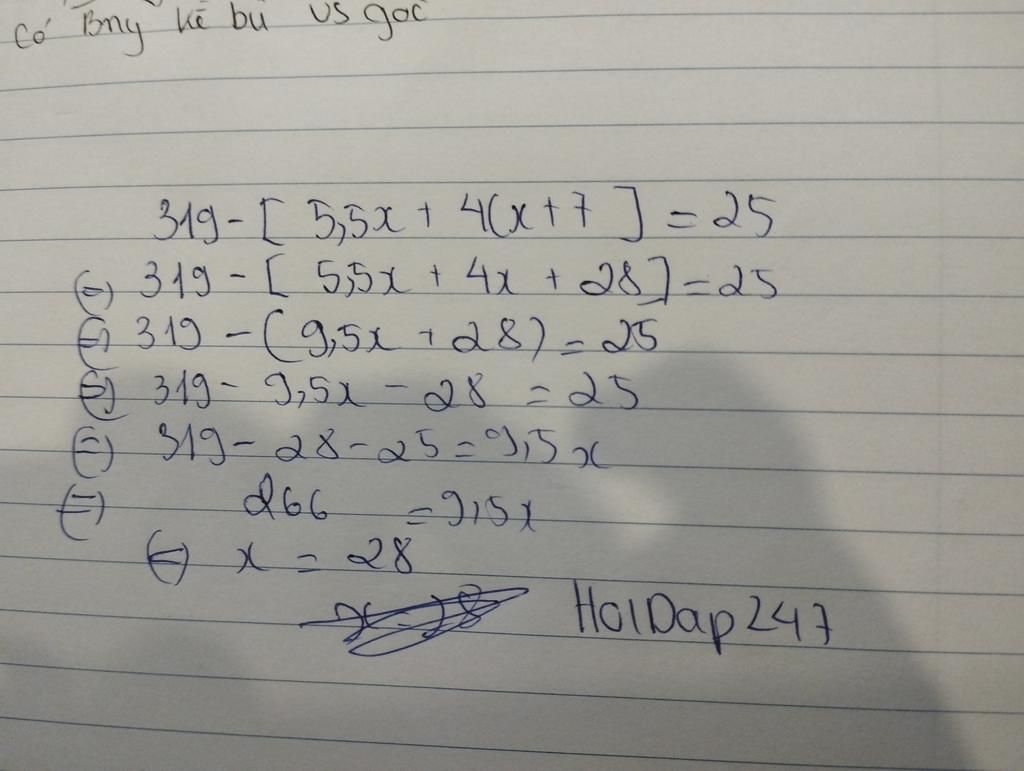 có Bny kề bù vs góc
319 - [ 5,5x + 4(x + 7 ] = 25
(=) 319 - [ 5,5x + 4x + 28] = 25
(=) 319 - ( 9,5x + 28) = 25
(=) 319 - 9,5x - 28 = 25
(=) 319 - 28 - 25 = 9,5x
(=) 266 = 9,5x
(=) x = 28
HoiDap247